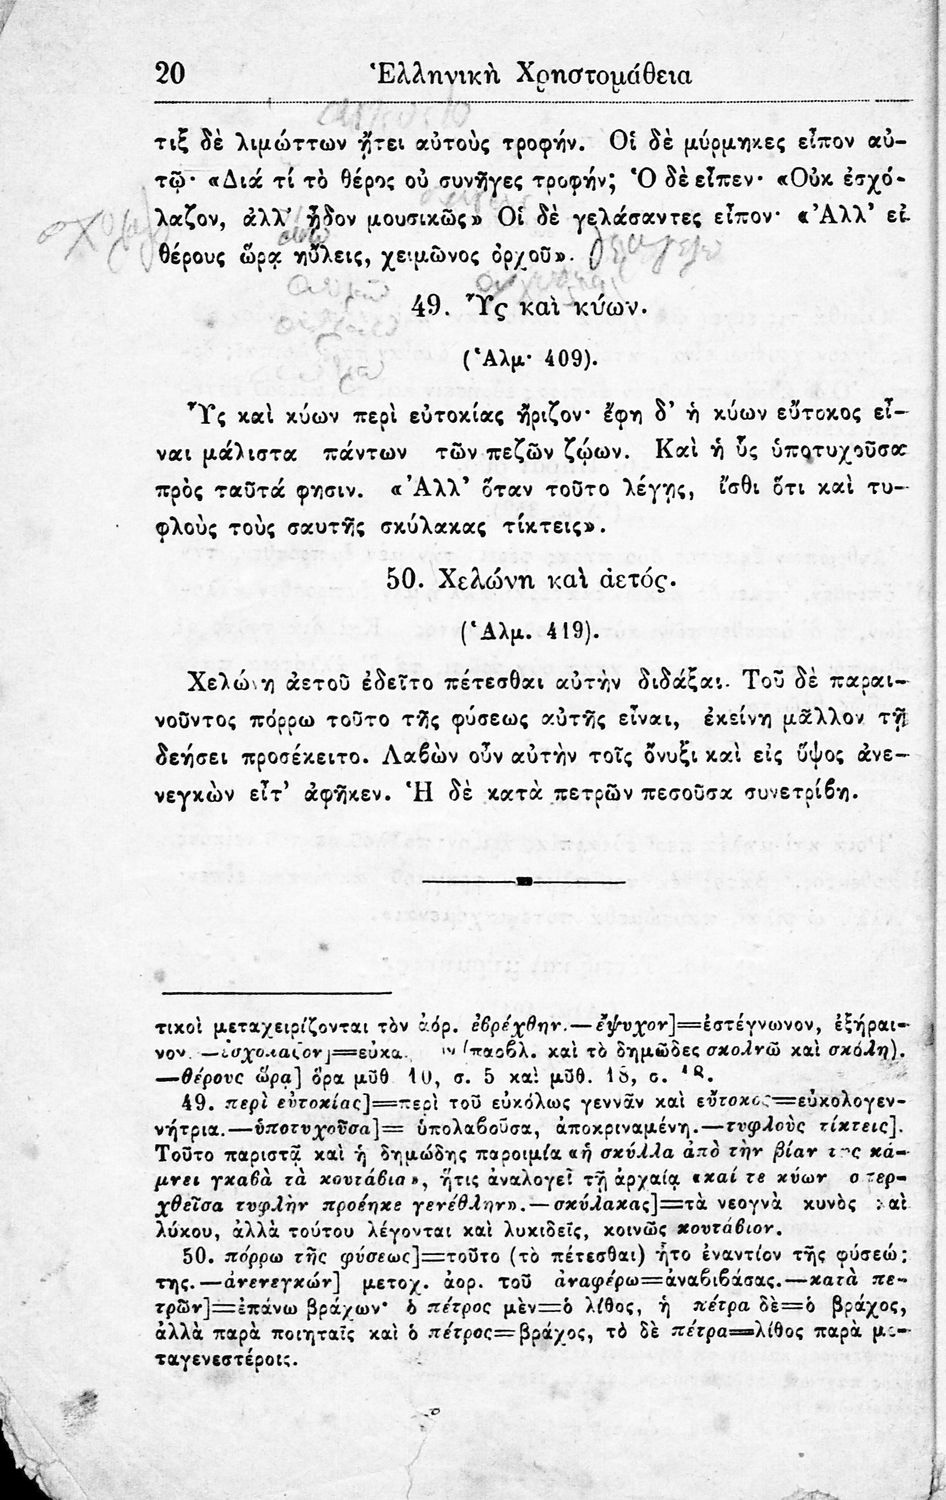 20 Ἑλληνικὴ Χρηστομάθεια
τιξ δὲ λιμώττων ᾔτει αὐτοὺς τροφήν. Οἱ δὲ μύρμηκες εἶπον αὐ-
τῷ· «Διά τί τὸ θέρος οὐ συνῆγες τροφήν; Ὁ δὲ εἶπεν· «Οὐκ ἐσχό-
λαζον, ἀλλ’ ᾖδον μουσικῶς» Οἱ δὲ γελάσαντες εἶπον· «Ἀλλ’ εἰ
θέρους ὥρᾳ ηὔλεις, χειμῶνος ὀρχοῦ».
49. Ὗς καὶ κύων.
(Ἁλμ· 409).
Ὗς καὶ κύων περὶ εὐτοκίας ἤριζον· ἔφη δ’ ἡ κύων εὔτοκος εἶ-
ναι μάλιστα πάντων τῶν πεζῶν ζῴων. Καὶ ἡ ὗς ὑποτυχοῦσα
πρὸς ταῦτά φησιν. «Ἀλλ’ ὅταν τοῦτο λέγῃς, ἴσθι ὅτι καὶ τυ-
φλοὺς τοὺς σαυτῆς σκύλακας τίκτεις».
50. Χελώνη καὶ ἀετός.
(Ἁλμ. 419).
Χελώνη ἀετοῦ ἐδεῖτο πέτεσθαι αὐτὴν διδάξαι. Τοῦ δὲ παραι-
νοῦντος πόρρω τοῦτο τῆς φύσεως αὐτῆς εἶναι, ἐκείνη μᾶλλον τῇ
δεήσει προσέκειτο. Λαβὼν οὖν αὐτὴν τοῖς ὄνυξι καὶ εἰς ὕψος ἀνε-
νεγκὼν εἶτ’ ἀφῆκεν. Ἡ δὲ κατὰ πετρῶν πεσοῦσα συνετρίβη.
τικοὶ μεταχειρίζονται τὸν ἀόρ. ἐβρέχθην.—ἔψυχον]=ἐστέγνωνον, ἐξήραι-
νον.—ἐσχόλαζον]=εὐκα. (παρβλ. καὶ τὸ δημῶδες σκολνῶ καὶ σκόλη).
—θέρους ὥρᾳ] ὅρα μῦθ 10, σ. 5 καὶ μῦθ. 18, σ.
49. περὶ εὐτοκίας]=περὶ τοῦ εὐκόλως γεννᾶν καὶ εὔτοκος=εὐκολογεν-
νήτρια.—ὑποτυχοῦσα]= ὑπολαβοῦσα, ἀποκριναμένη.—τυφλοὺς τίκτεις].
Τοῦτο παριστᾷ καὶ ἡ δημώδης παροιμία «ἡ σκύλλα ἀπὸ τὴν βίαν της κά-
μνει γκαβὰ τὰ κουτάβια», ἥτις ἀναλογεῖ τῇ ἀρχαίᾳ «καί τε κύων σπερ-
χθεῖσα τυφλὴν προέηκε γενέθλην».—σκύλακας]=τὰ νεογνὰ κυνὸς καὶ
λύκου, ἀλλὰ τούτου λέγονται καὶ λυκιδεῖς, κοινῶς κουτάβιον.
50. πόρρω τῆς φύσεως]=τοῦτο (τὸ πέτεσθαι) ἦτο ἐναντίον τῆς φύσεώς
της.—ἀνενεγκών] μετοχ. ἀορ. τοῦ ἀναφέρω=ἀναβιβάσας.—κατὰ πε-
τρῶν]=ἐπάνω βράχων· ὁ πέτρος μὲν=ὁ λίθος, ἡ πέτρα δὲ=ὁ βράχος,
ἀλλὰ παρὰ ποιηταῖς καὶ ὁ πέτρος=βράχος, τὸ δὲ πέτρα=λίθος παρὰ με-
ταγενεστέροις.